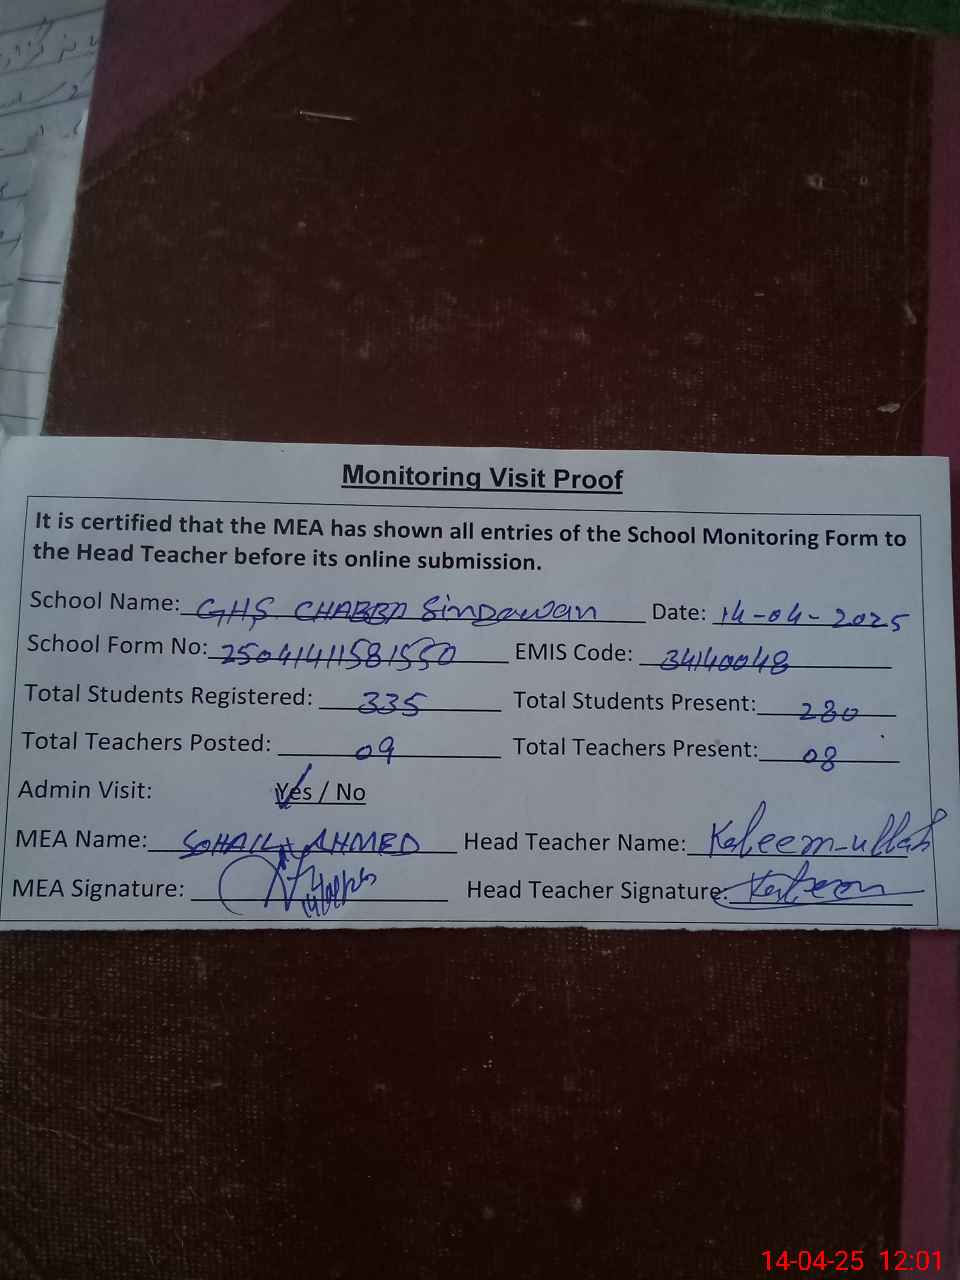 Monitoring Visit Proof
It is certified that the MEA has shown all entries of the School Monitoring Form to
the Head Teacher before its online submission.
School Name: GHS CHABBA Sindawan Date: 14-04-2025
School Form No: 25041411581550 EMIS Code: 34140048
Total Students Registered: 335 Total Students Present: 280
Total Teachers Posted: 09 Total Teachers Present: 08
Admin Visit: Yes / No
MEA Name: SOHAIL AHMED Head Teacher Name: Kaleem-ullah
MEA Signature: Head Teacher Signature: Kaleem
14-04-25 12:01